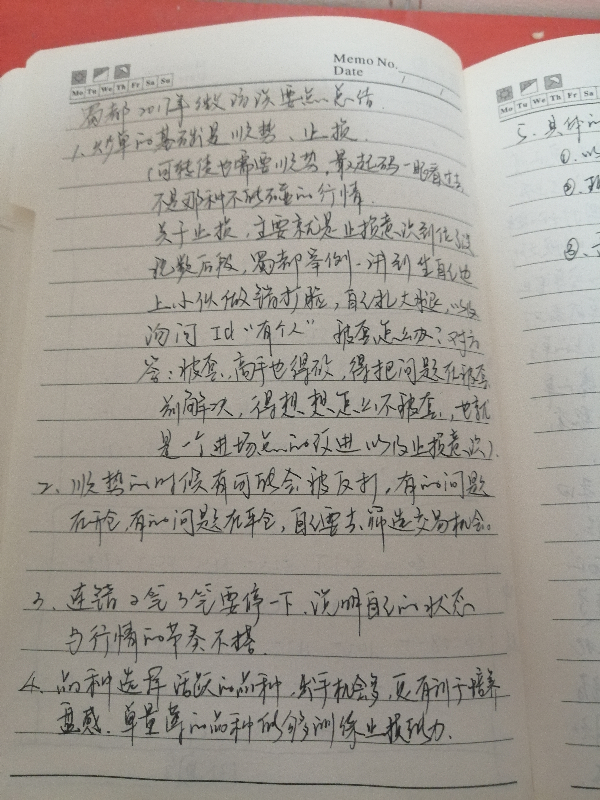 Memo No.
Date / /
Mo Tu We Th Fr Sa Su
蜀都2017年微访谈要点总结.
1、炒单的基础是顺势、止损.
(可转债也需要顺势,最起码一眼看过去
不是那种不能不要的行情.
关于止损,主要就是止损意识到位
蜀都举例.讲到生自己电
上小伙做错打脸,自己扎大腿,以及
访问Id“有个人”被套怎么办?对方
答:被套,高手也得砍,得把问题在被套
前解决,得想想怎么不被套,也就
是一个进场点的改进以及止损意识).
2、顺势的时候有可能会被反打,有的问题
在开仓,有的问题在平仓,自己要去筛选交易机会。
3、连错2笔3笔要停一下.说明自己的状态
与行情的节奏不搭.
4、品种选择活跃的品种,出手机会多,更有利于培养
盘感.单量薄的品种能够训练止损能力.
Mo Tu We Th Fr
5、具体的
①、以
②、
③、